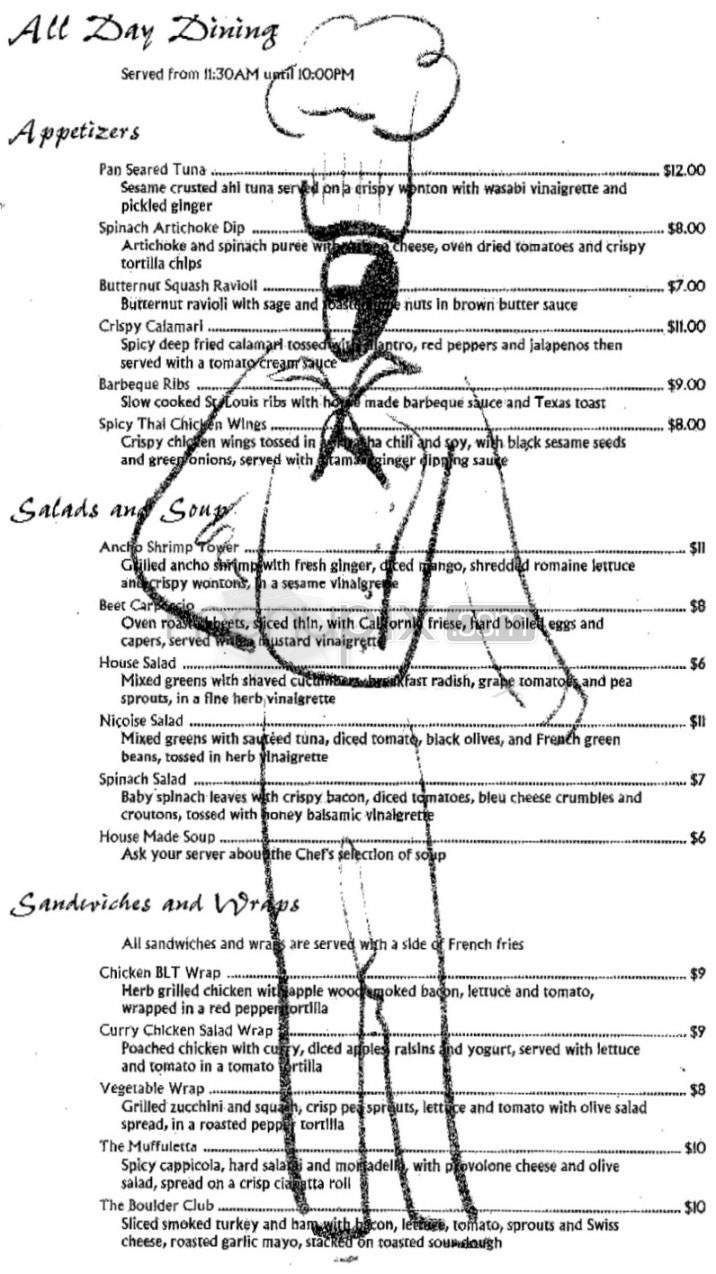 All Day Dining
Served from 11:30AM until 10:00PM
Appetizers
Pan Seared Tuna $12.00
Sesame crusted ahi tuna served on a crispy wonton with wasabi vinaigrette and
pickled ginger
Spinach Artichoke Dip $8.00
Artichoke and spinach puree with cheese, oven dried tomatoes and crispy
tortilla chips
Butternut Squash Ravioli $7.00
Butternut ravioli with sage and nuts in brown butter sauce
Crispy Calamari $11.00
Spicy deep fried calamari tossed with cilantro, red peppers and jalapenos then
served with a tomato cream sauce
Barbeque Ribs $9.00
Slow cooked St. Louis ribs with house made barbeque sauce and Texas toast
Spicy Thai Chicken Wings $8.00
Crispy chicken wings tossed in chili and soy, with black sesame seeds
and green onions, served with ginger dipping sauce
Salads and Soup
Ancho Shrimp Tower $11
Grilled ancho shrimp with fresh ginger, diced mango, shredded romaine lettuce
and crispy wontons, in a sesame vinaigrette
Beet Carpaccio $8
Oven roasted beets, sliced thin, with California friese, hard boiled eggs and
capers, served with a mustard vinaigrette
House Salad $6
Mixed greens with shaved cucumbers, breakfast radish, grape tomatoes and pea
sprouts, in a fine herb vinaigrette
Niçoise Salad $11
Mixed greens with sautéed tuna, diced tomato, black olives, and French green
beans, tossed in herb vinaigrette
Spinach Salad $7
Baby spinach leaves with crispy bacon, diced tomatoes, bleu cheese crumbles and
croutons, tossed with honey balsamic vinaigrette
House Made Soup $6
Ask your server about the Chef's selection of soup
Sandwiches and Wraps
All sandwiches and wraps are served with a side of French fries
Chicken BLT Wrap $9
Herb grilled chicken with apple wood smoked bacon, lettuce and tomato,
wrapped in a red pepper tortilla
Curry Chicken Salad Wrap $9
Poached chicken with curry, diced apples, raisins and yogurt, served with lettuce
and tomato in a tomato tortilla
Vegetable Wrap $8
Grilled zucchini and squash, crisp pea sprouts, lettuce and tomato with olive salad
spread, in a roasted pepper tortilla
The Muffuletta $10
Spicy cappicola, hard salami and mortadella, with provolone cheese and olive
salad, spread on a crisp ciabatta roll
The Boulder Club $10
Sliced smoked turkey and ham with bacon, lettuce, tomato, sprouts and Swiss
cheese, roasted garlic mayo, stacked on toasted sourdough